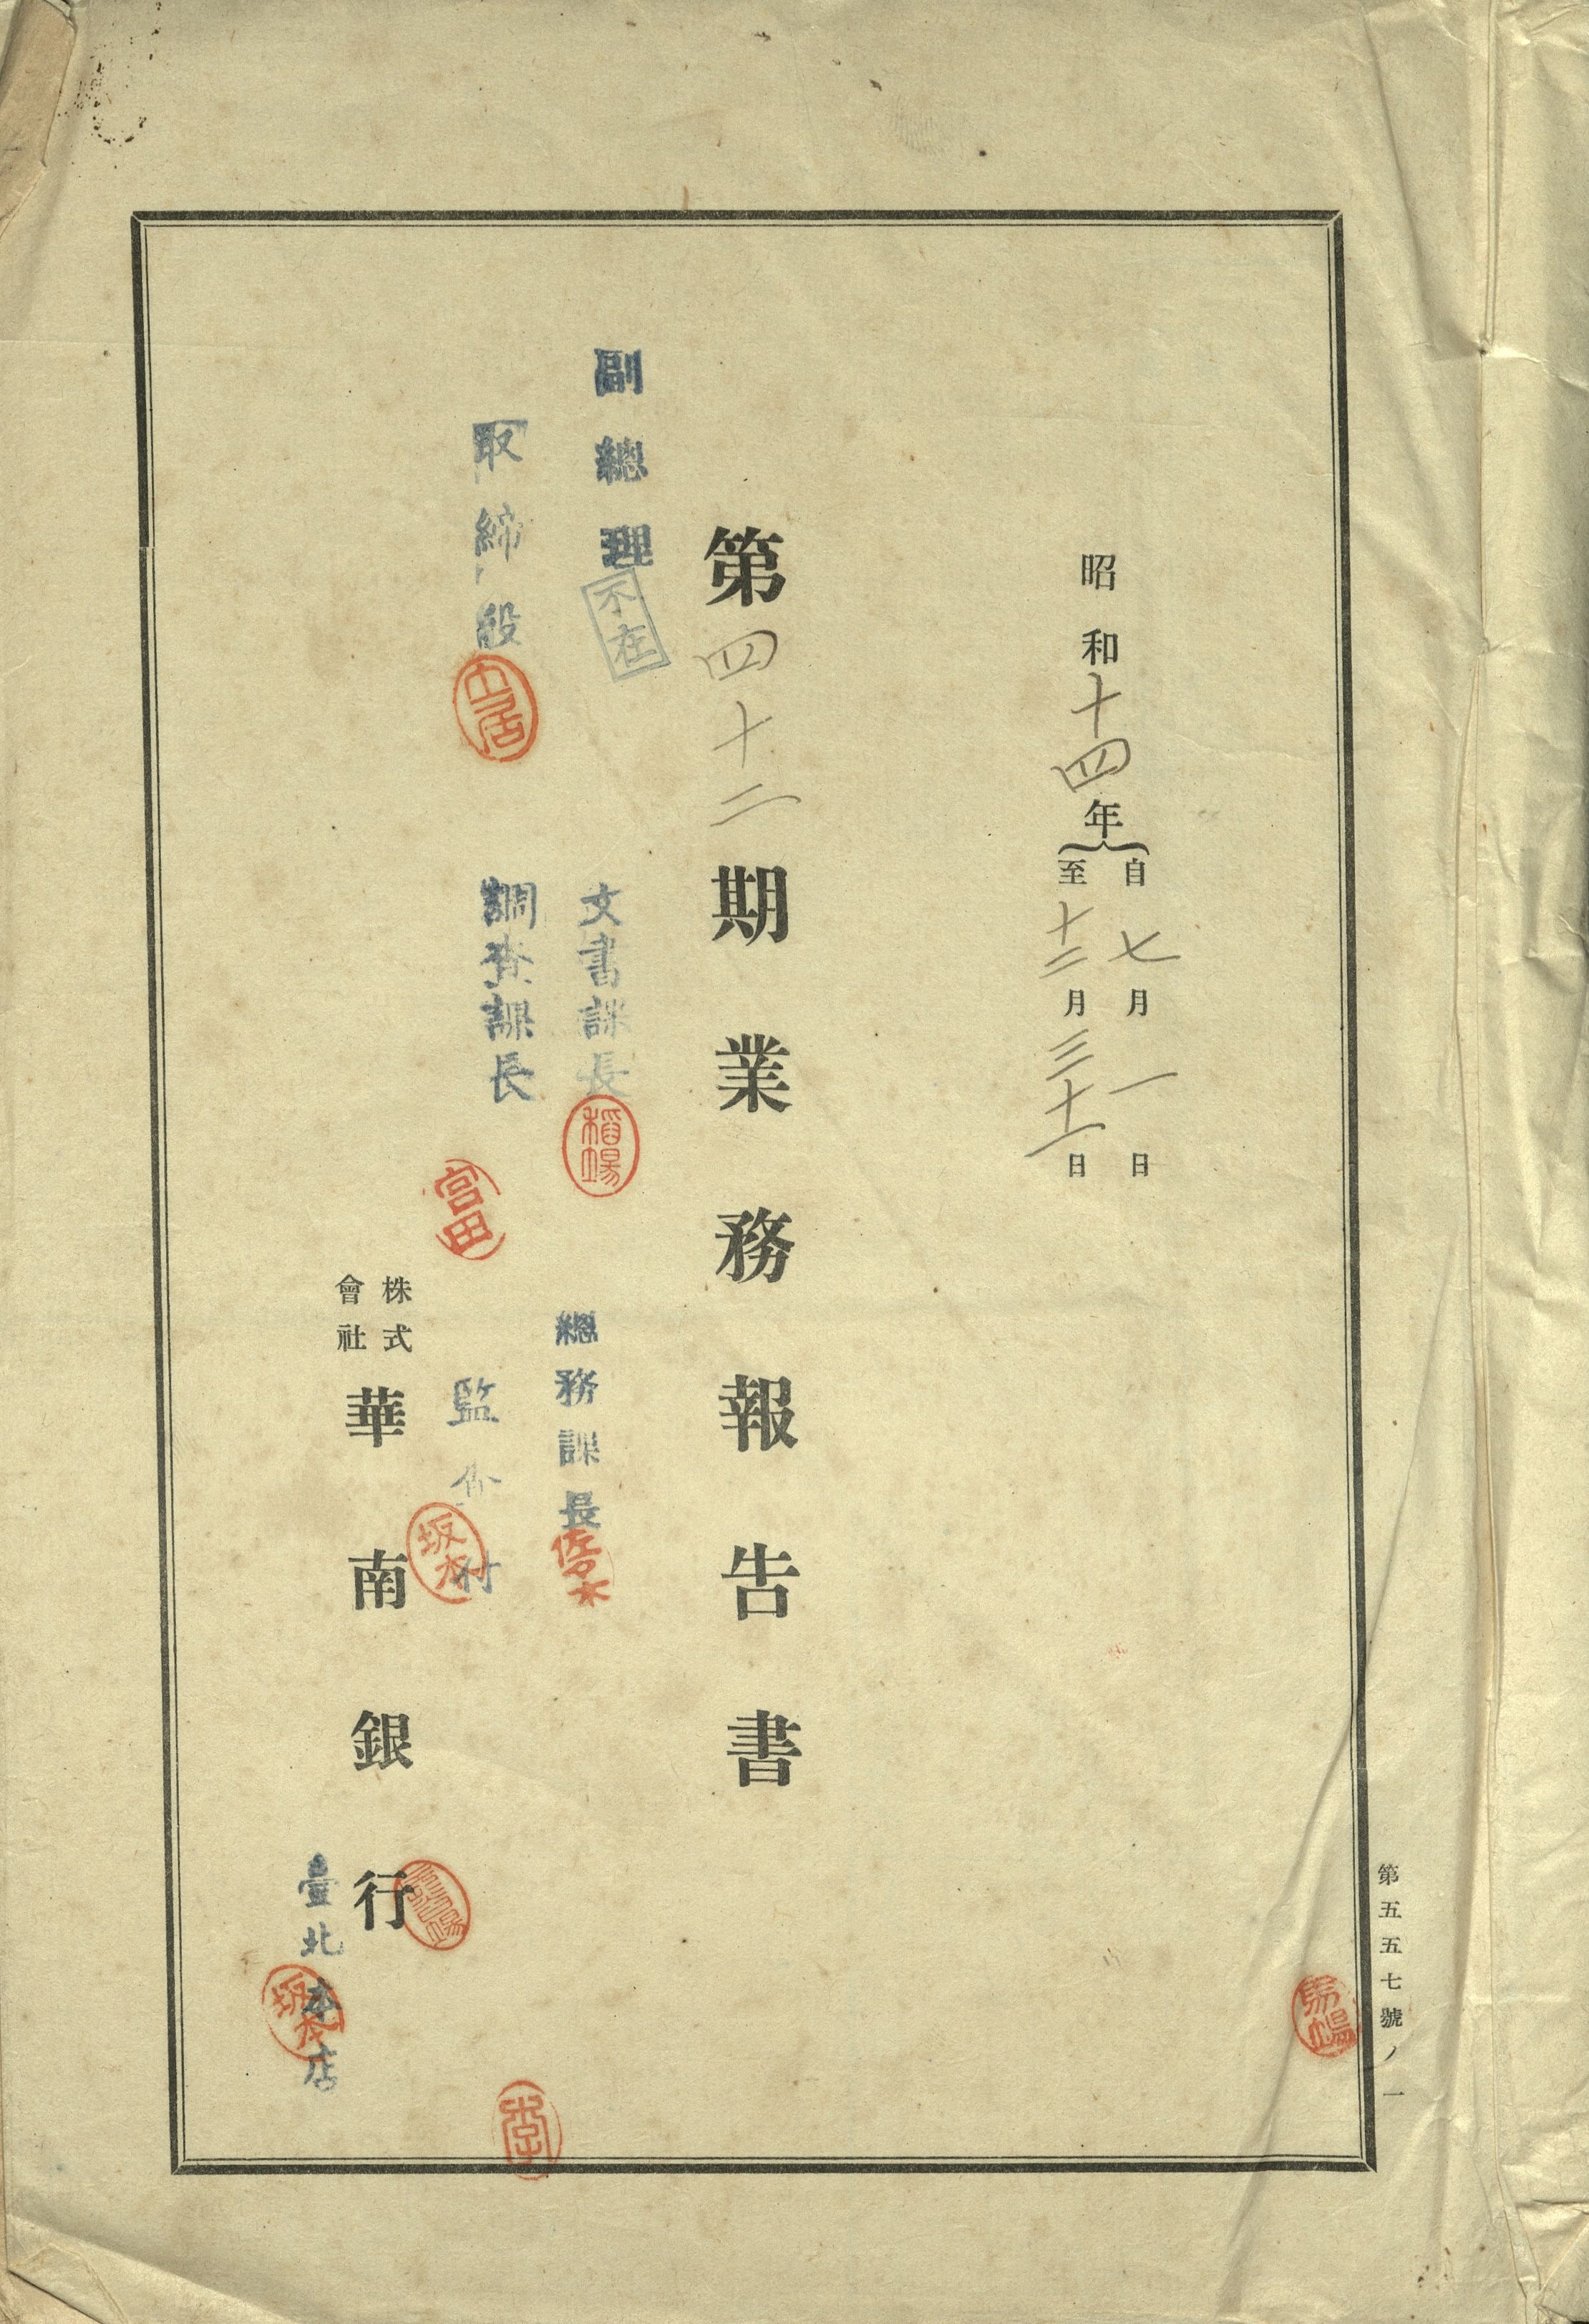 第五五七號ノ一
昭和十四年
自七月一日
至十二月三十一日
第四十二期業務報告書
副總理
不在
取締役
土居
文書課長
稻場
調査課長
宮田
總務課長
佐々木
監査付
坂本
株式
會社
華南銀行
臺北本店
坂本
馬場
李